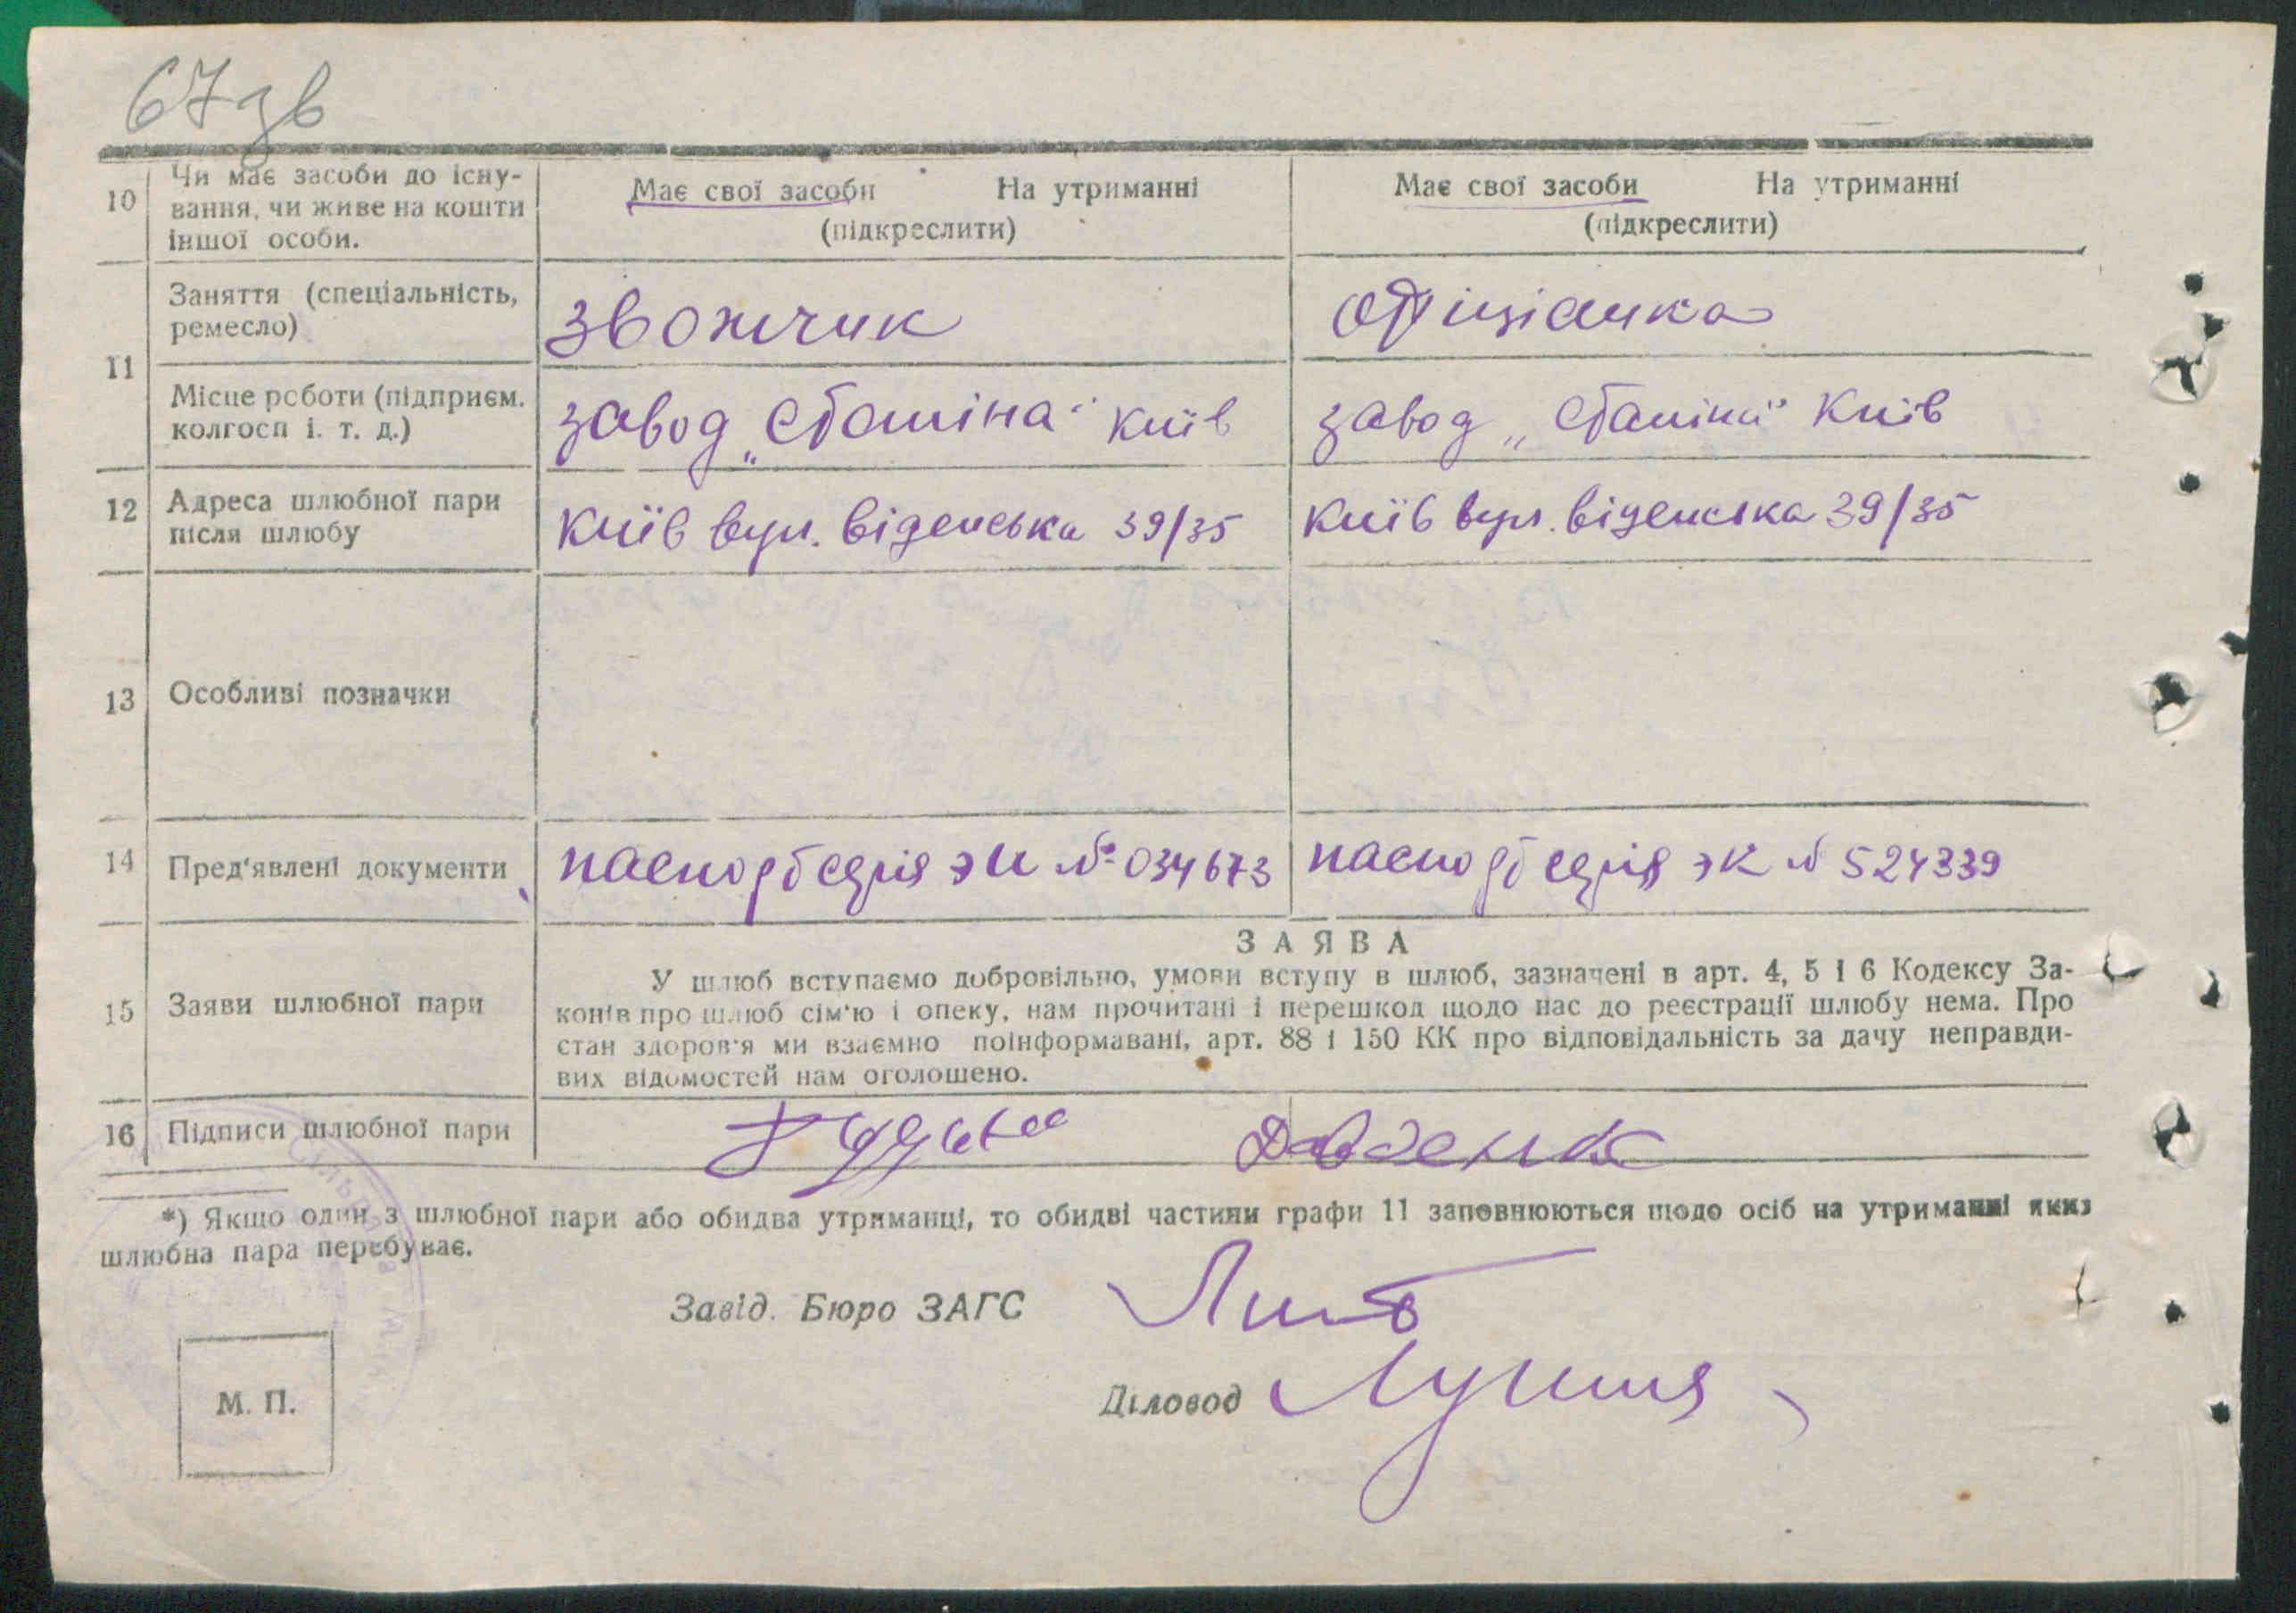 67зв
10 Чи має засоби до існу-
вання, чи живе на кошти
іншої особи.
Має свої засоби На утриманні
(підкреслити)
Має свої засоби На утриманні
(підкреслити)
11
Заняття (спеціальність,
ремесло)
звожчик
офіціанка
Місце роботи (підприєм.
колгосп і. т. д.)
завод „Сталіна“ Київ
завод „Сталіна“ Київ
12 Адреса шлюбної пари
після шлюбу
Київ вул. Віденська 39/35
Київ вул. Віденська 39/35
13 Особливі позначки
14 Пред'явлені документи
паспорт серія ЭИ № 034673
паспорт серія ЭК № 524339
15 Заяви шлюбної пари
ЗАЯВА
У шлюб вступаємо добровільно, умови вступу в шлюб, зазначені в арт. 4, 5 і 6 Кодексу За-
конів про шлюб сім'ю і опеку, нам прочитані і перешкод щодо нас до реєстрації шлюбу нема. Про
стан здоров'я ми взаємно поінформавані, арт. 88 і 150 КК про відповідальність за дачу неправди-
вих відомостей нам оголошено.
16 Підписи шлюбної пари
*) Якщо один з шлюбної пари або обидва утриманці, то обидві частини графи 11 заповнюються щодо осіб на утриманні яких
шлюбна пара перебуває.
Завід. Бюро ЗАГС
Діловод
М. П.